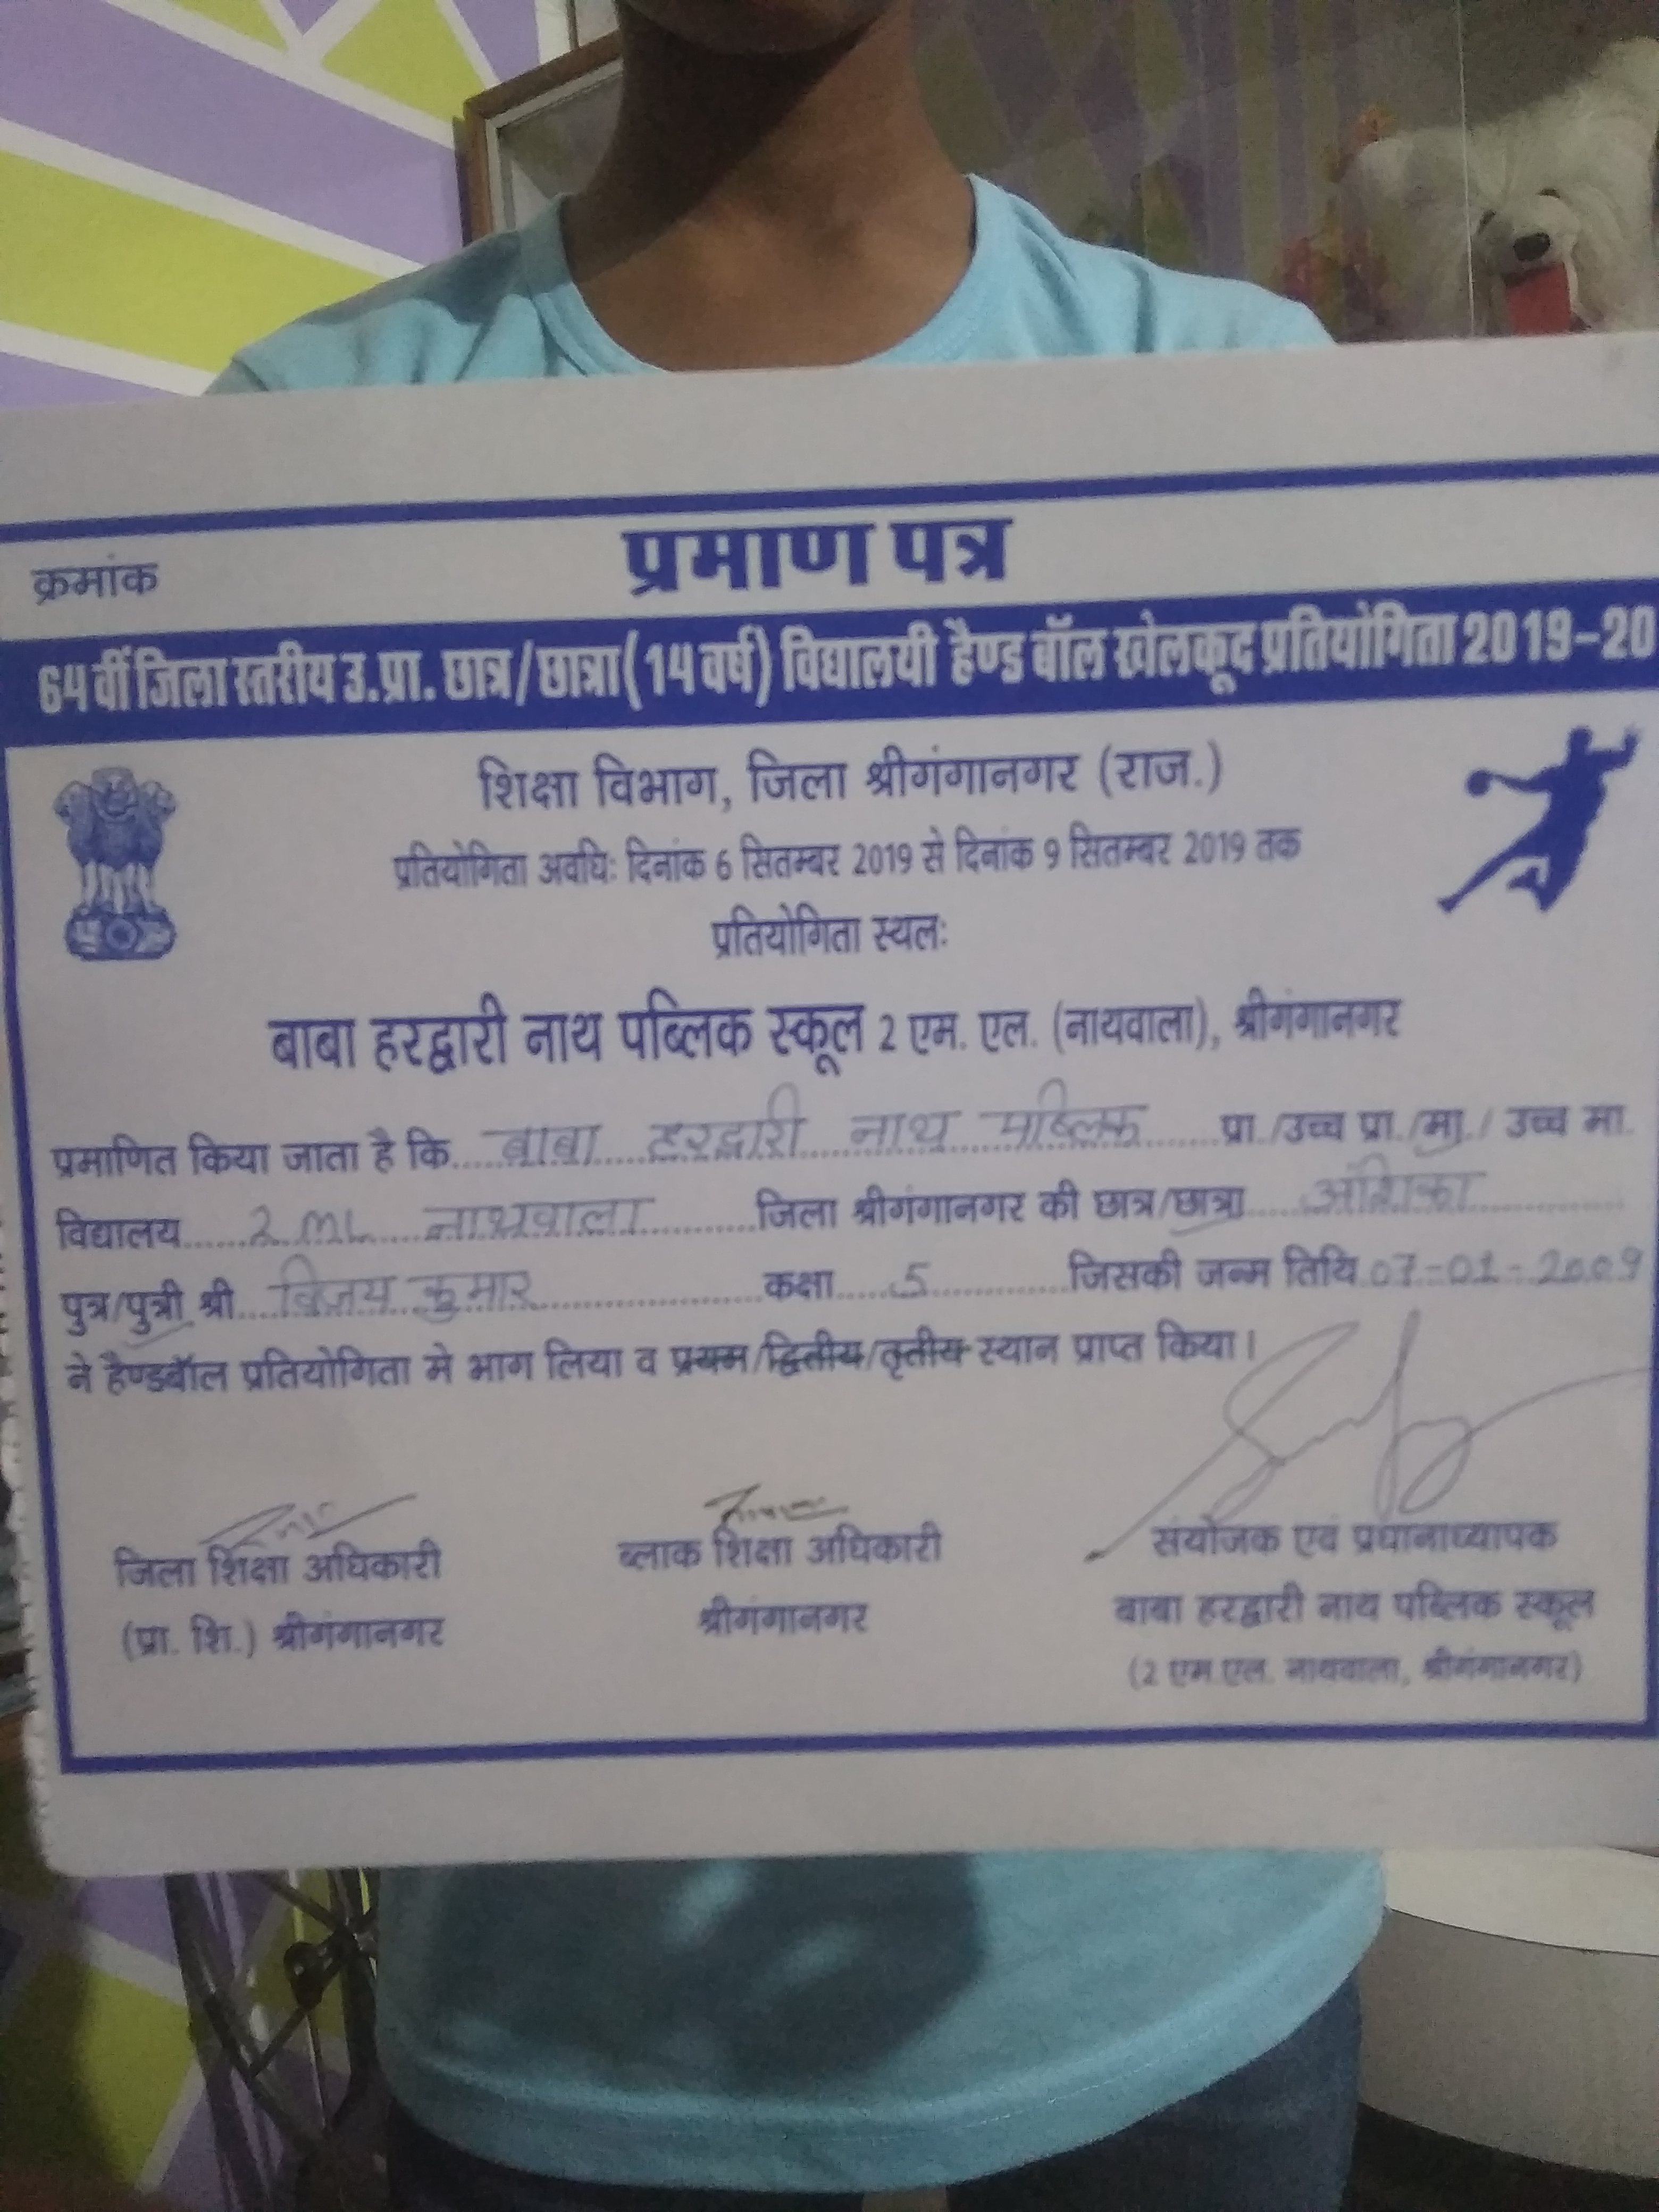 प्रमाण पत्र
क्रमांक
64 वीं जिला स्तरीय उ.प्रा. छात्र/छात्रा (14 वर्ष) विद्यालयी हैण्ड बॉल खेलकूद प्रतियोगिता 2019-20
शिक्षा विभाग, जिला श्रीगंगानगर (राज.)
प्रतियोगिता अवधिः दिनांक 6 सितम्बर 2019 से दिनांक 9 सितम्बर 2019 तक
प्रतियोगिता स्थलः
बाबा हरद्वारी नाथ पब्लिक स्कूल 2 एम. एल. (नाथवाला), श्रीगंगानगर
प्रमाणित किया जाता है कि बाबा हरद्वारी नाथ पब्लिक प्रा./उच्च प्रा./मा./ उच्च मा.
विद्यालय 2 ML नाथवाला जिला श्रीगंगानगर की छात्र/छात्रा अंशिका
पुत्र/पुत्री श्री विजय कुमार कक्षा 5 जिसकी जन्म तिथि 07-01-2009
ने हैण्डबॉल प्रतियोगिता मे भाग लिया व प्रथम/द्वितीय/तृतीय स्थान प्राप्त किया।
जिला शिक्षा अधिकारी ब्लाक शिक्षा अधिकारी संयोजक एवं प्रधानाध्यापक
(प्रा. शि.) श्रीगंगानगर श्रीगंगानगर बाबा हरद्वारी नाथ पब्लिक स्कूल
(2 एम.एल. नाथवाला, श्रीगंगानगर)